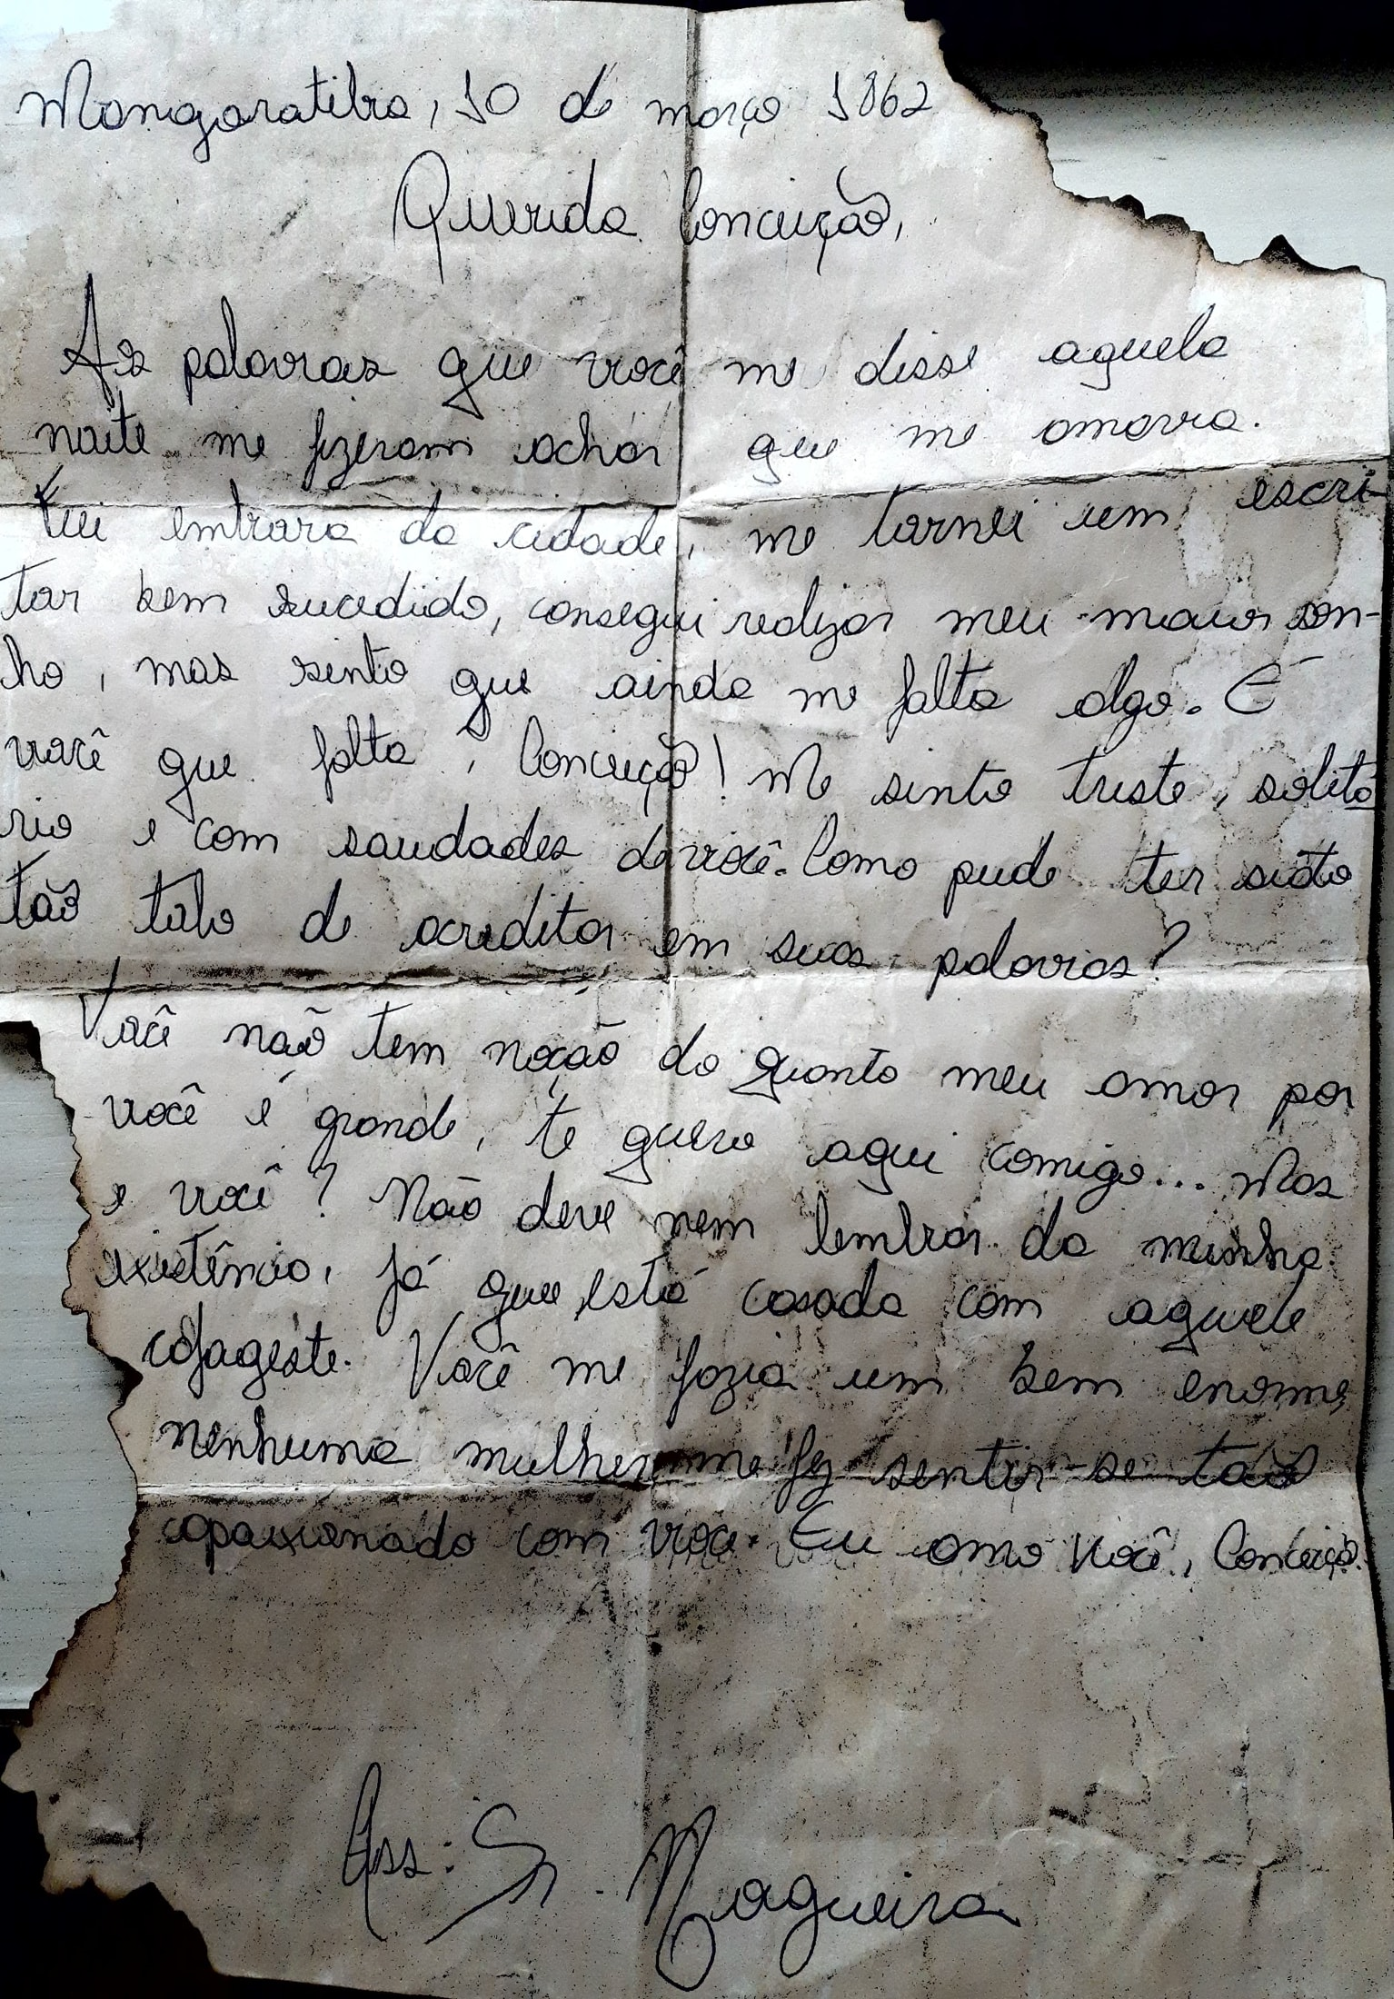 Mangaratiba, 10 de março 1862
Querida Conceição,
As palavras que você me disse aquela
noite me fizeram achar que me amava.
Fui embora da cidade, me tornei um escri-
tor bem sucedido, consegui realizar meu maior son-
ho, mas sinto que ainda me falta algo. É
você que falta, Conceição! Me sinto triste, solitá
rio e com saudades de você. Como pude ter sido
tão tolo de acreditar em suas palavras?
Você não tem noção do quanto meu amor por
você é grande, te quero aqui comigo... Mas
e você? Não deve nem lembrar da minha
existência, já que está casada com aquele
cafageste. Você me fazia um bem enorme,
nenhuma mulher me fez sentir-se tão
apaixonado com você. Eu amo você, Conceição.
Ass: Sr. Nogueira